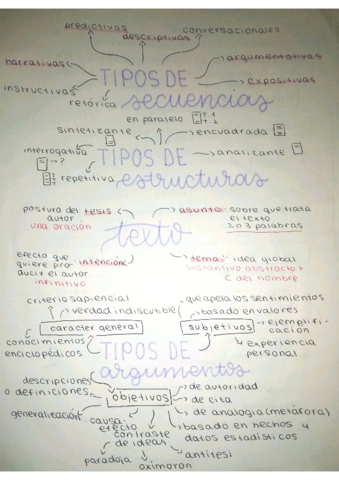 predictivas
descriptivas
conversacionales
narrativas
argumentativas
TIPOS DE
expositivas
instructivas
retórica
secuencias
en paralelo
T 1
T 2
sintetizante
encuadrada
interrogativa
?
TIPOS DE
analizante
repetitiva
estructuras
postura del tesis
autor
una oración
asunto: sobre que trata
el texto
2 o 3 palabras
texto
efecto que
quiere pro- intención
ducir el autor
infinitivo
tema: idea global
sustantivo abstracto +
C del nombre
criterio sapiencial
verdad indiscutible
que apela los sentimientos
basado en valores
caracter general
subjetivos
ejemplifi-
cación
conocimientos
enciclopédicos
experiencia
personal
TIPOS DE
argumentos
descripciones
o definiciones
objetivos
de autoridad
de cita
generalización
de analogía (metáfora)
causa
efecto
basado en hechos y
datos estadísticos
contraste
de ideas
antítesi
paradoja
oximoron